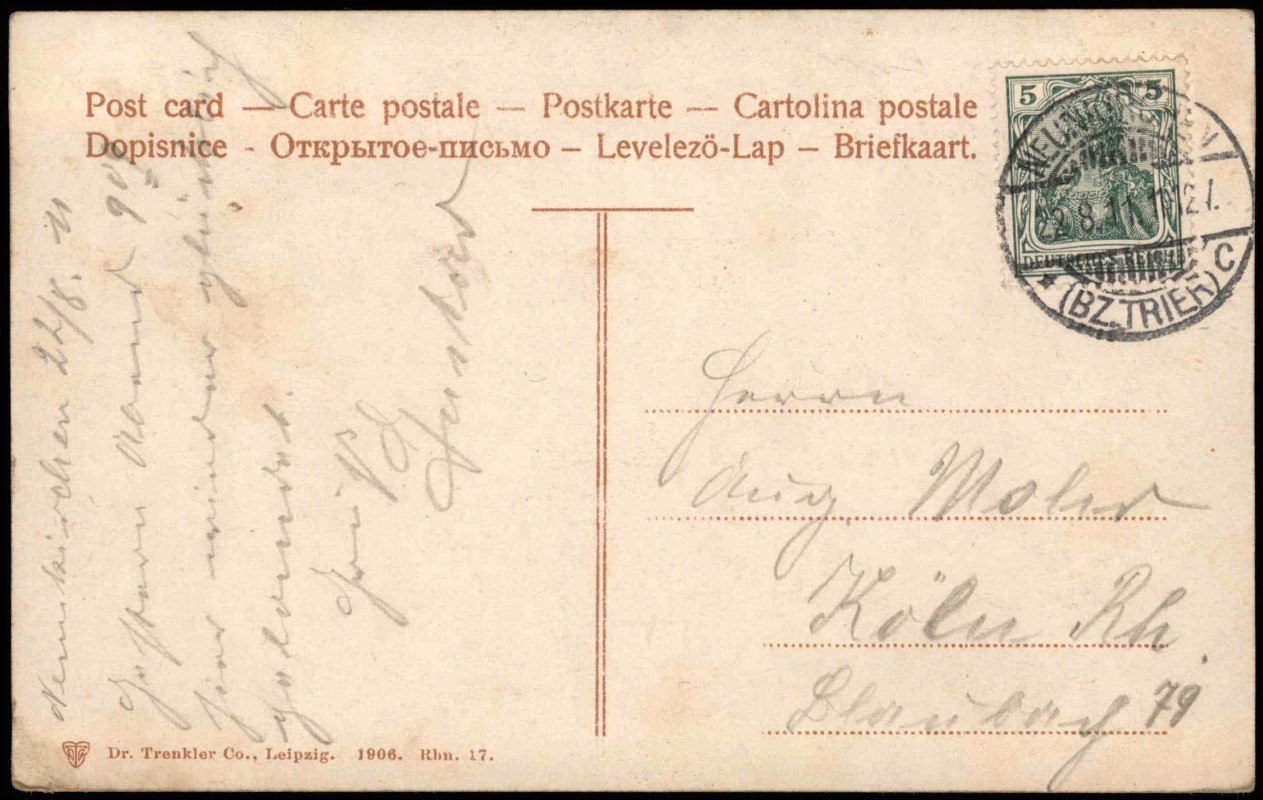 Post card — Carte postale — Postkarte — Cartolina postale
Dopisnice - Открытое-письмо – Levelezö-Lap – Briefkaart.
5 5
DEUTSCHES REICH
NEUNKIRCHEN
22.8.11
* (BZ. TRIER) C
Neunkirchen 22/8. 11
Gestern Abend 9
hier wieder glücklich
gelandet.
Herrn
Aug. Moler
Köln Rh.
Blaubach 79
Dr. Trenkler Co., Leipzig. 1906. Rhn. 17.